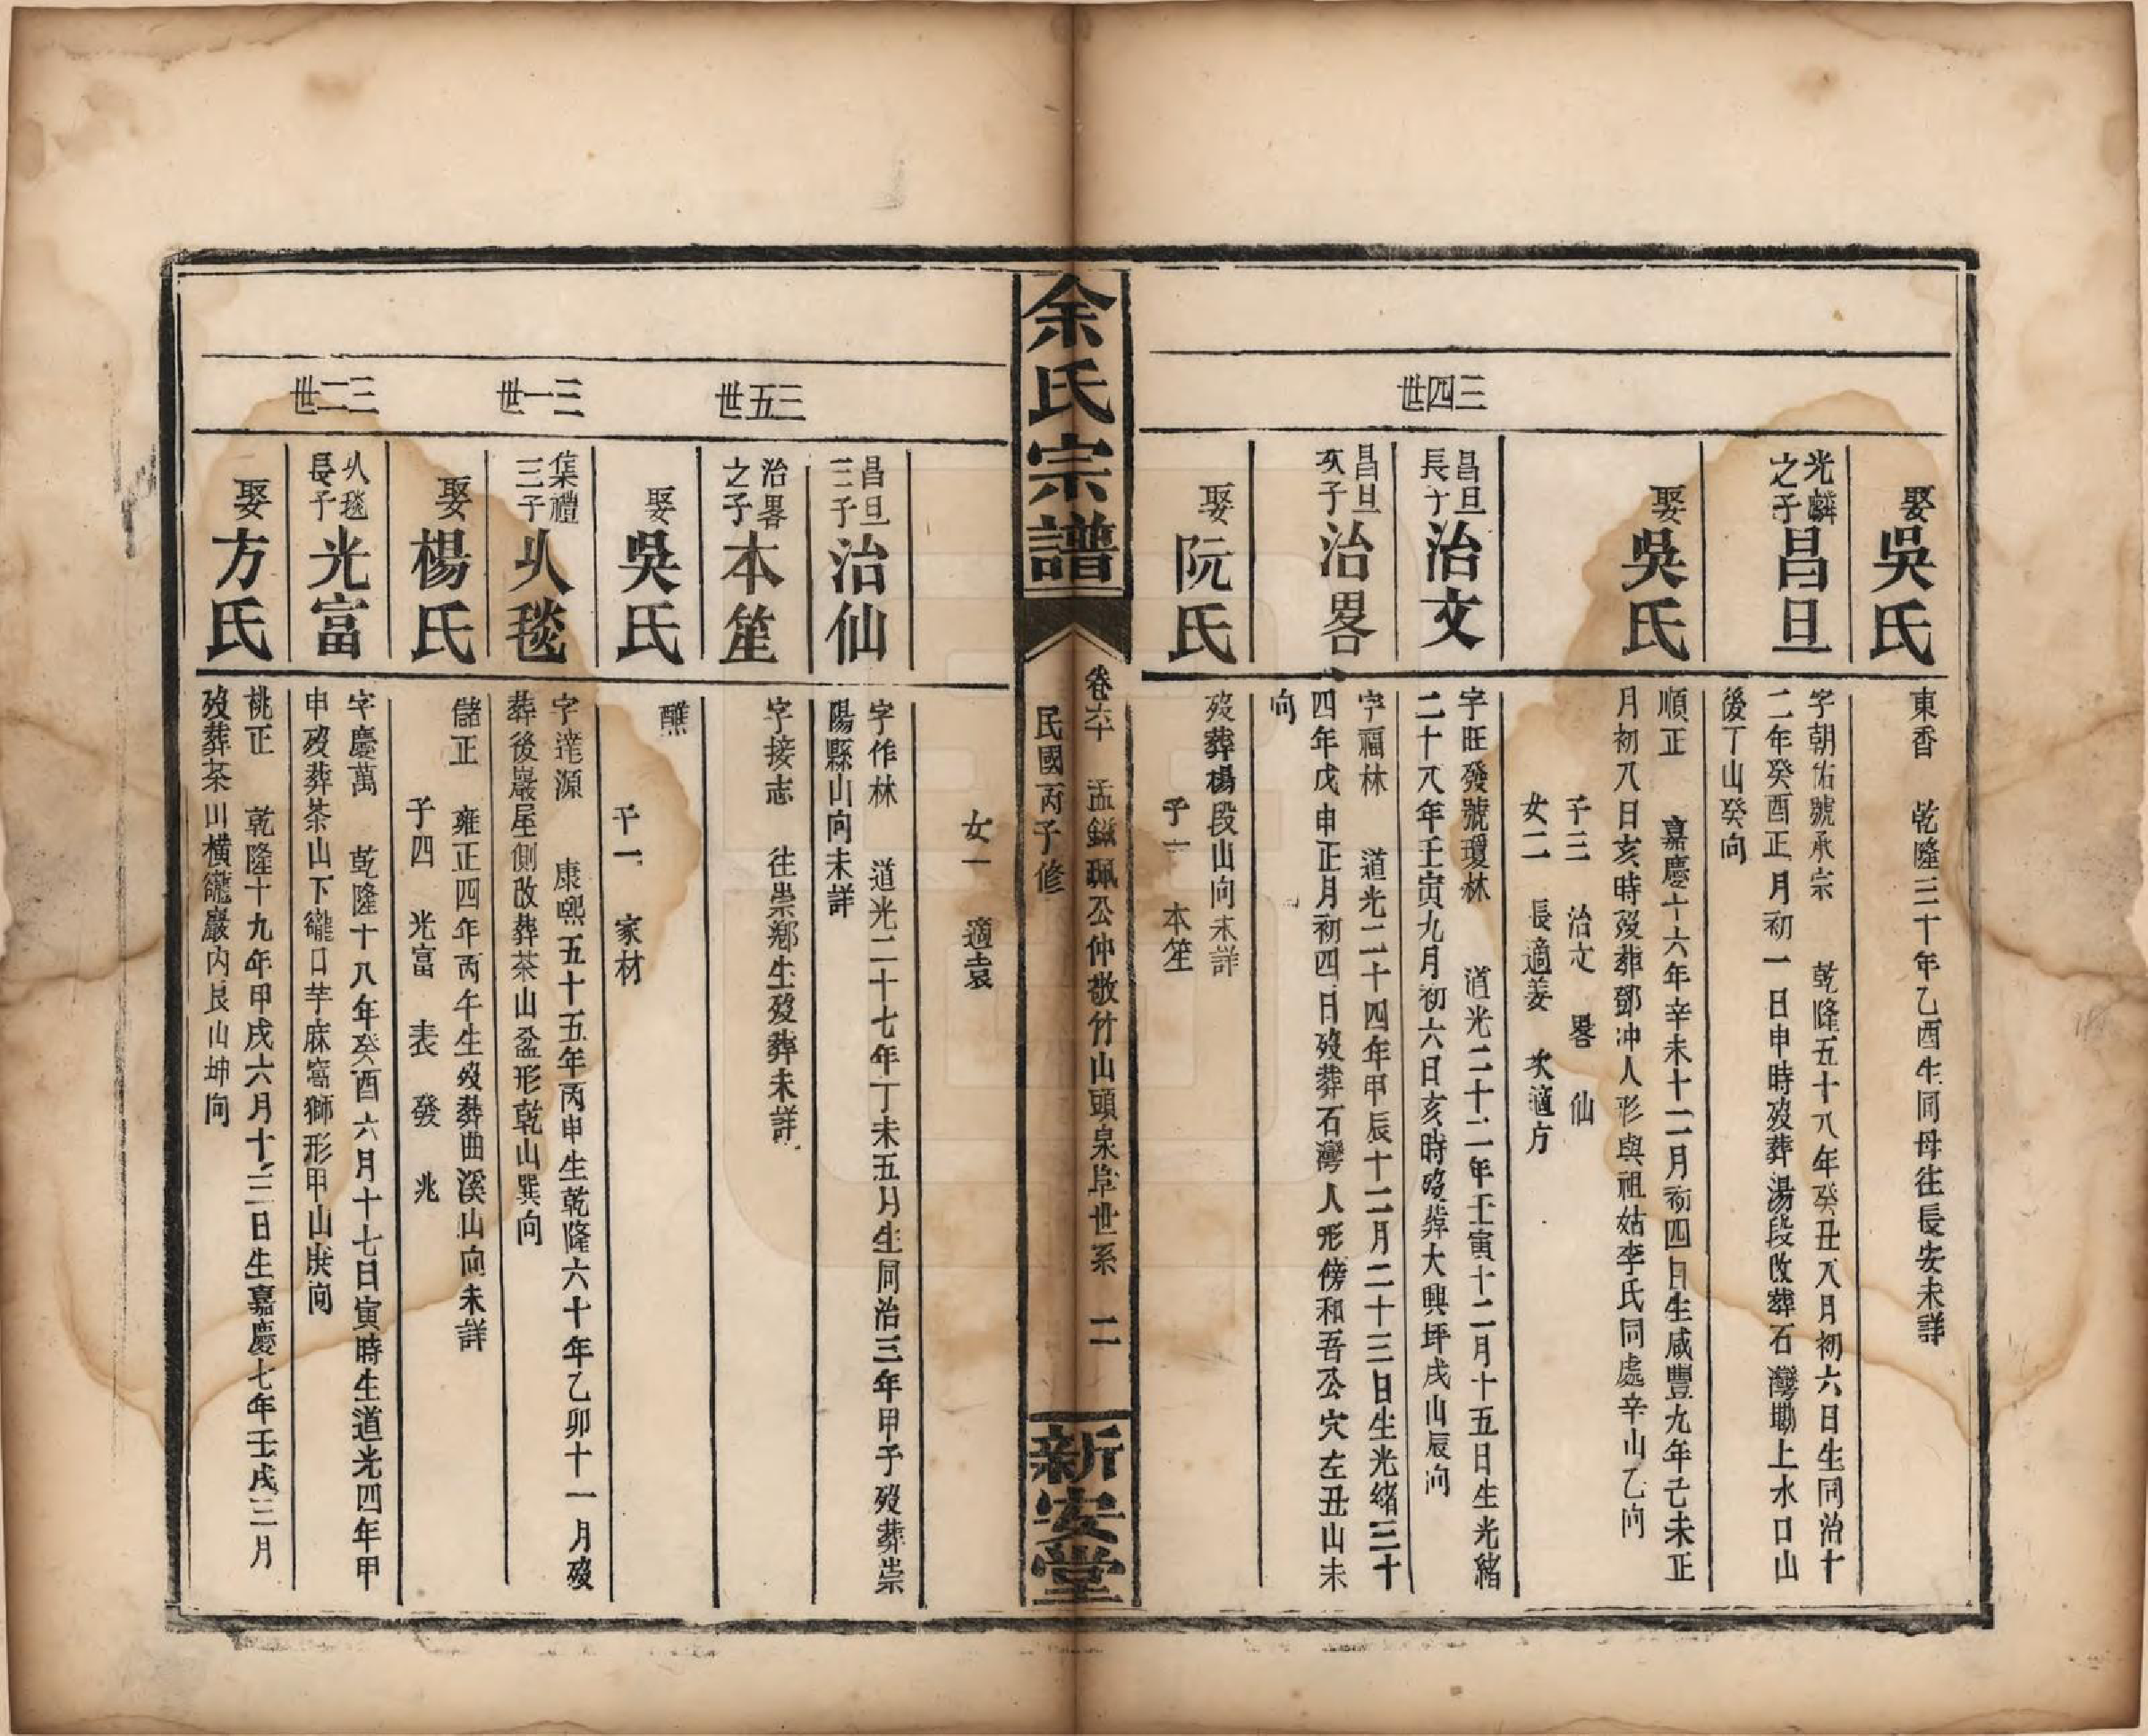 三四世
娶吳氏
東香 乾隆三十年乙酉生同母往長安未詳
光麟之子昌旦
字朝佑號承宗 乾隆五十八年癸丑八月初六日生同治十
二年癸酉正月初一日申時歿葬湯段改葬石灣墈上水口山
後丁山癸向
娶吳氏
順正 嘉慶十六年辛未十二月初四日生咸豐九年己未正
月初八日亥時歿葬鄧冲人形與祖姑李氏同處辛山乙向
子三 治文 畧 仙
女二 長適姜 次適方
昌旦長子治文
字旺發號瓊林 道光二十二年壬寅十二月十五日生光緒
二十八年壬寅九月初六日亥時歿葬大興坪戌山辰向
昌旦次子治畧
字福林 道光二十四年甲辰十二月二十三日生光緒三十
四年戊申正月初四日歿葬石灣人形傍和吾公穴左丑山未
向
娶阮氏
歿葬楊段山向未詳
子一 本笙
余氏宗譜
卷六 孟鎡珮公仲敬竹山頭泉阜世系 二
民國丙子修
新安堂
女一 適袁
昌旦三子治仙
字作林 道光二十七年丁未五月生同治三年甲子歿葬崇
陽縣山向未詳
三五世
治畧之子本笙
字接志 往崇鄉生歿葬未詳
娶吳氏
醮
子一 家材
三一世
集禮三子㕥毯
字達源 康熙五十五年丙申生乾隆六十年乙卯十一月歿
葬後巖屋側改葬茶山盆形乾山巽向
娶楊氏
儲正 雍正四年丙午生歿葬曲溪山向未詳
子四 光富 表 發 兆
三二世
㕥毯長子光富
字慶萬 乾隆十八年癸酉六月十七日寅時生道光四年甲
申歿葬茶山下巃口芋麻窩獅形甲山庚向
娶方氏
桃正 乾隆十九年甲戌六月十三日生嘉慶七年壬戌三月
歿葬茶川橫巃巖內艮山坤向